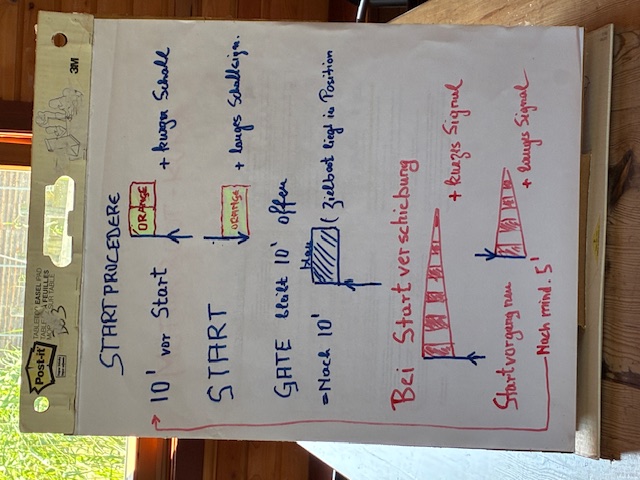 STARTPROCEDERE
10' vor Start
ORANGE
+ kurzer Schall
START
ORANGE
+ langes Schallsign.
GATE bleibt 10' offen
= Nach 10'
blau
(Zielboot liegt in Position
Bei Startverschiebung
+ kurzes Signal
Startvorgang neu
+ langes Signal
Nach mind. 5'
Post-it
3M